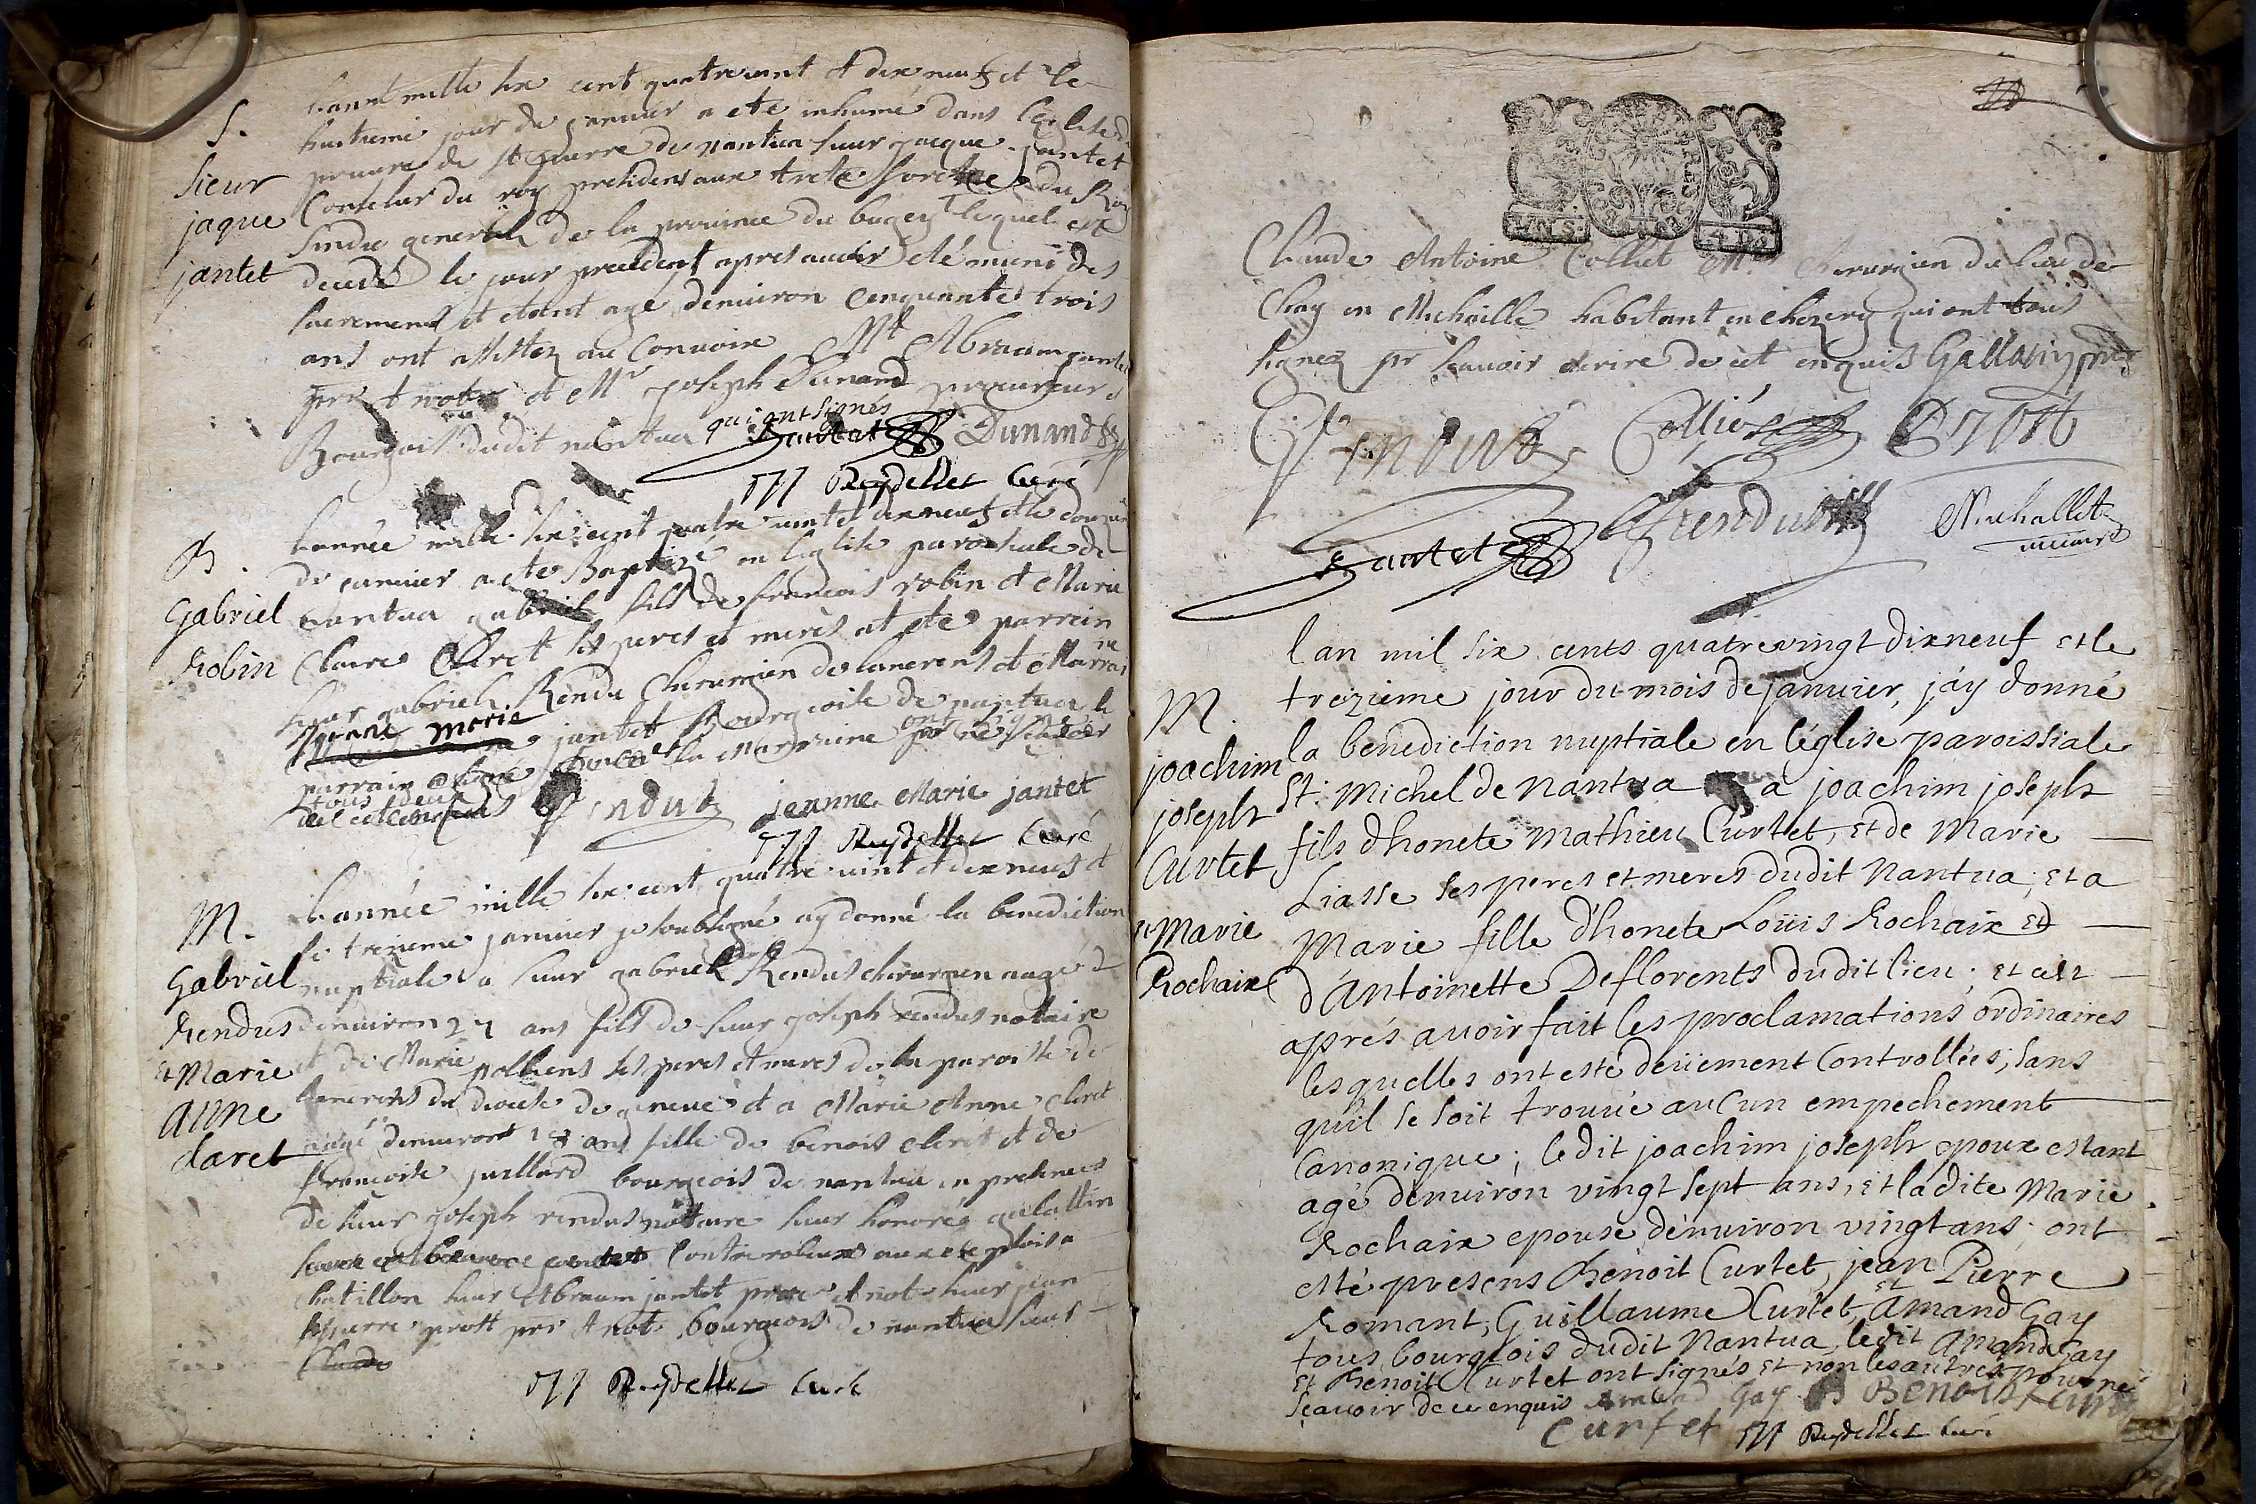 S.
Sieur
jaque
jantet
Lanné mille six cent quatrevint et dix neuf et le
huitieme jour de janvier a ete inhumé dans l'eglise du
prieure de st pierre de nantua sieur jacque jantet
Conseler du roy president aux du Roy
sindic general de la province du bugey lequel est
decedé le jour precedent apres avoir eté muni des
sacremens et etant agé denviron cenquante trois
ans ont assistez au Convoire Mr Abraam jantet
et Mr joseph Dunand procureurs
Bourgois dudit nantua qui ont signés
Jantet Dunand
Reydellet Curé
B.
Gabriel
Robin
Lannée mille six cent quatre vint et dix neuf et le
de janvier a ete Baptizé en leglise parochiale de
nantua gabriel fils de francois robin et Marie
Claire Claret ses peres et meres at ete parrein
sieur gabriel Rendu Chirurgien de lanerens et Marraine
jeane marie jantet Bourgoise de nantua le
parrain a signé la Marraine ont signé
tous deux
Rendut jeanne Marie jantet
Reydellet Curé
M.
Gabriel
Rendus
et Marie
anne
claret
Lannée mille six cent quatre vint et dix neuf et
le trezieme janvier je soubsigné ay donné la benediction
nuptiale a sieur gabriel Rendus chirurgien aagé
denviron 27 ans fils de sieur joseph rendus notaire
et de Marie polliens ses peres et meres de la paroisse de
lanerens du diocese de geneve et a Marie Anne claret
aagé denviront ans fille de benois claret et de
francoise juillard bourgeois de nantua en presences
de sieur joseph rendus notaire sieur honoré galattin
Controleur aux explois a
chatillon sieur Abraam jantet et not. sieur jean
pierre prost et not. bourgeois de nantua sieur
Claude
Reydellet Curé
Claude Antoine Colliet Mtre chirurgien du lieu de
Chay en Michaille habitant en chezery qui ont tous
signez pr scavoir ecrire de cet enquis Gallatin
Rendus Colliés Prost
Jantet Rendut Michallet
vicaire
M.
joachim
joseph
Curtet
et Marie
Rochaix
lan mil six cents quatrevingt dixneuf et le
trezieme jour du mois de janvier, j'ay donné
la benediction nuptiale en l'église paroissiale
St. Michel de Nantua a joachim joseph
fils dhonete Mathieu Curtet, et de Marie
Liasse ses peres et meres dudit Nantua; et a
Marie fille d'honete Loüis Rochaix et
d'Antoinette Deflorents dudit lieu; et cest
aprés avoir fait les proclamations ordinaires
lesquelles ont esté deüement Controllées, sans
quil se soit trouvé aucun empechement
Canonique; ledit joachim joseph epoux estant
agé denviron vingt sept ans, et ladite Marie
Rochaix epouse dénviron vingt ans; ont
esté presens benoit Curtet, jean Pierre
Romant, Guillaume Curtet, et Amand Gay
tous bourgeois dudit Nantua, ledit Amand Gay
et benoit Curtet ont signés et non les autres pour ne
sçavoir de ce enquis Amand Gay Benoit
Curtet Reydellet Curé